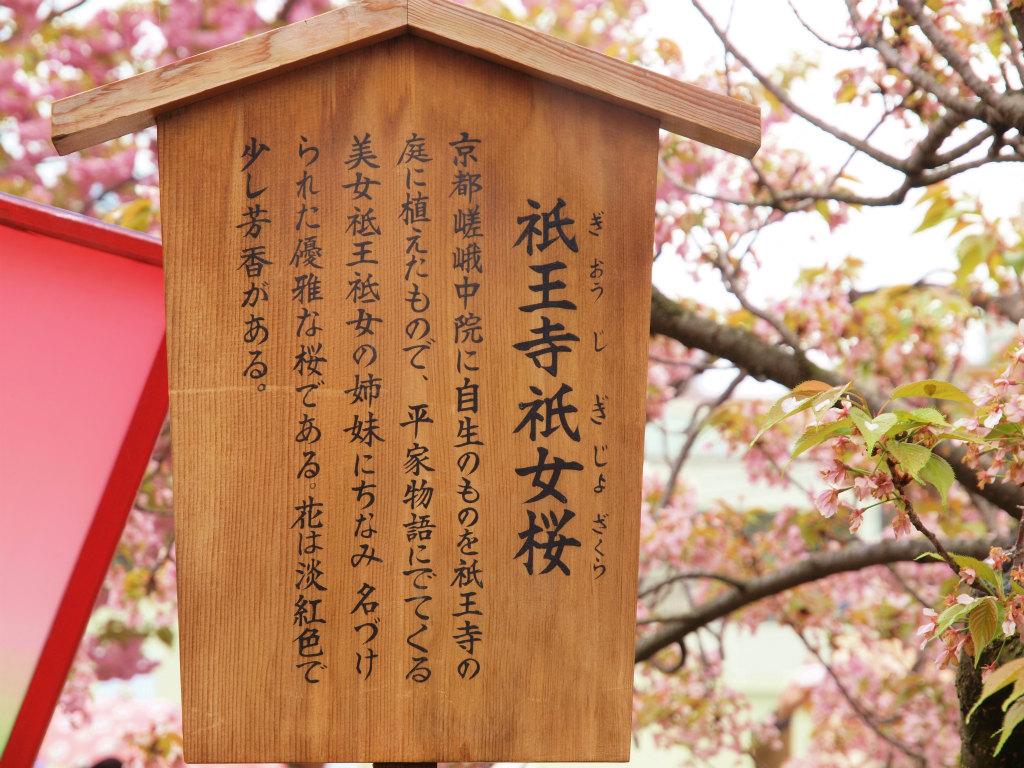 祇王寺祇女桜
ぎおうじ ぎじょざくら
京都嵯峨中院に自生のものを祇王寺の
庭に植えたもので、平家物語にでてくる
美女祗王祗女の姉妹にちなみ名づけ
られた優雅な桜である。花は淡紅色で
少し芳香がある。